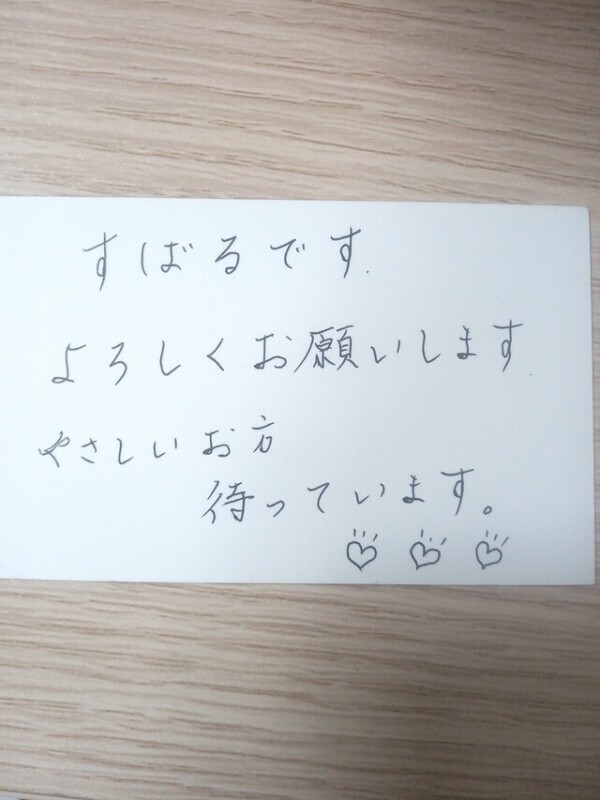 すばるです.
よろしくお願いします
やさしいお方
待っています。
♡♡♡